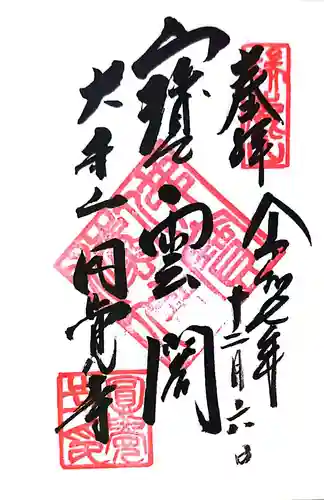 奉拝
令和七年
十二月六日
寶雲閣
大本山円覚寺